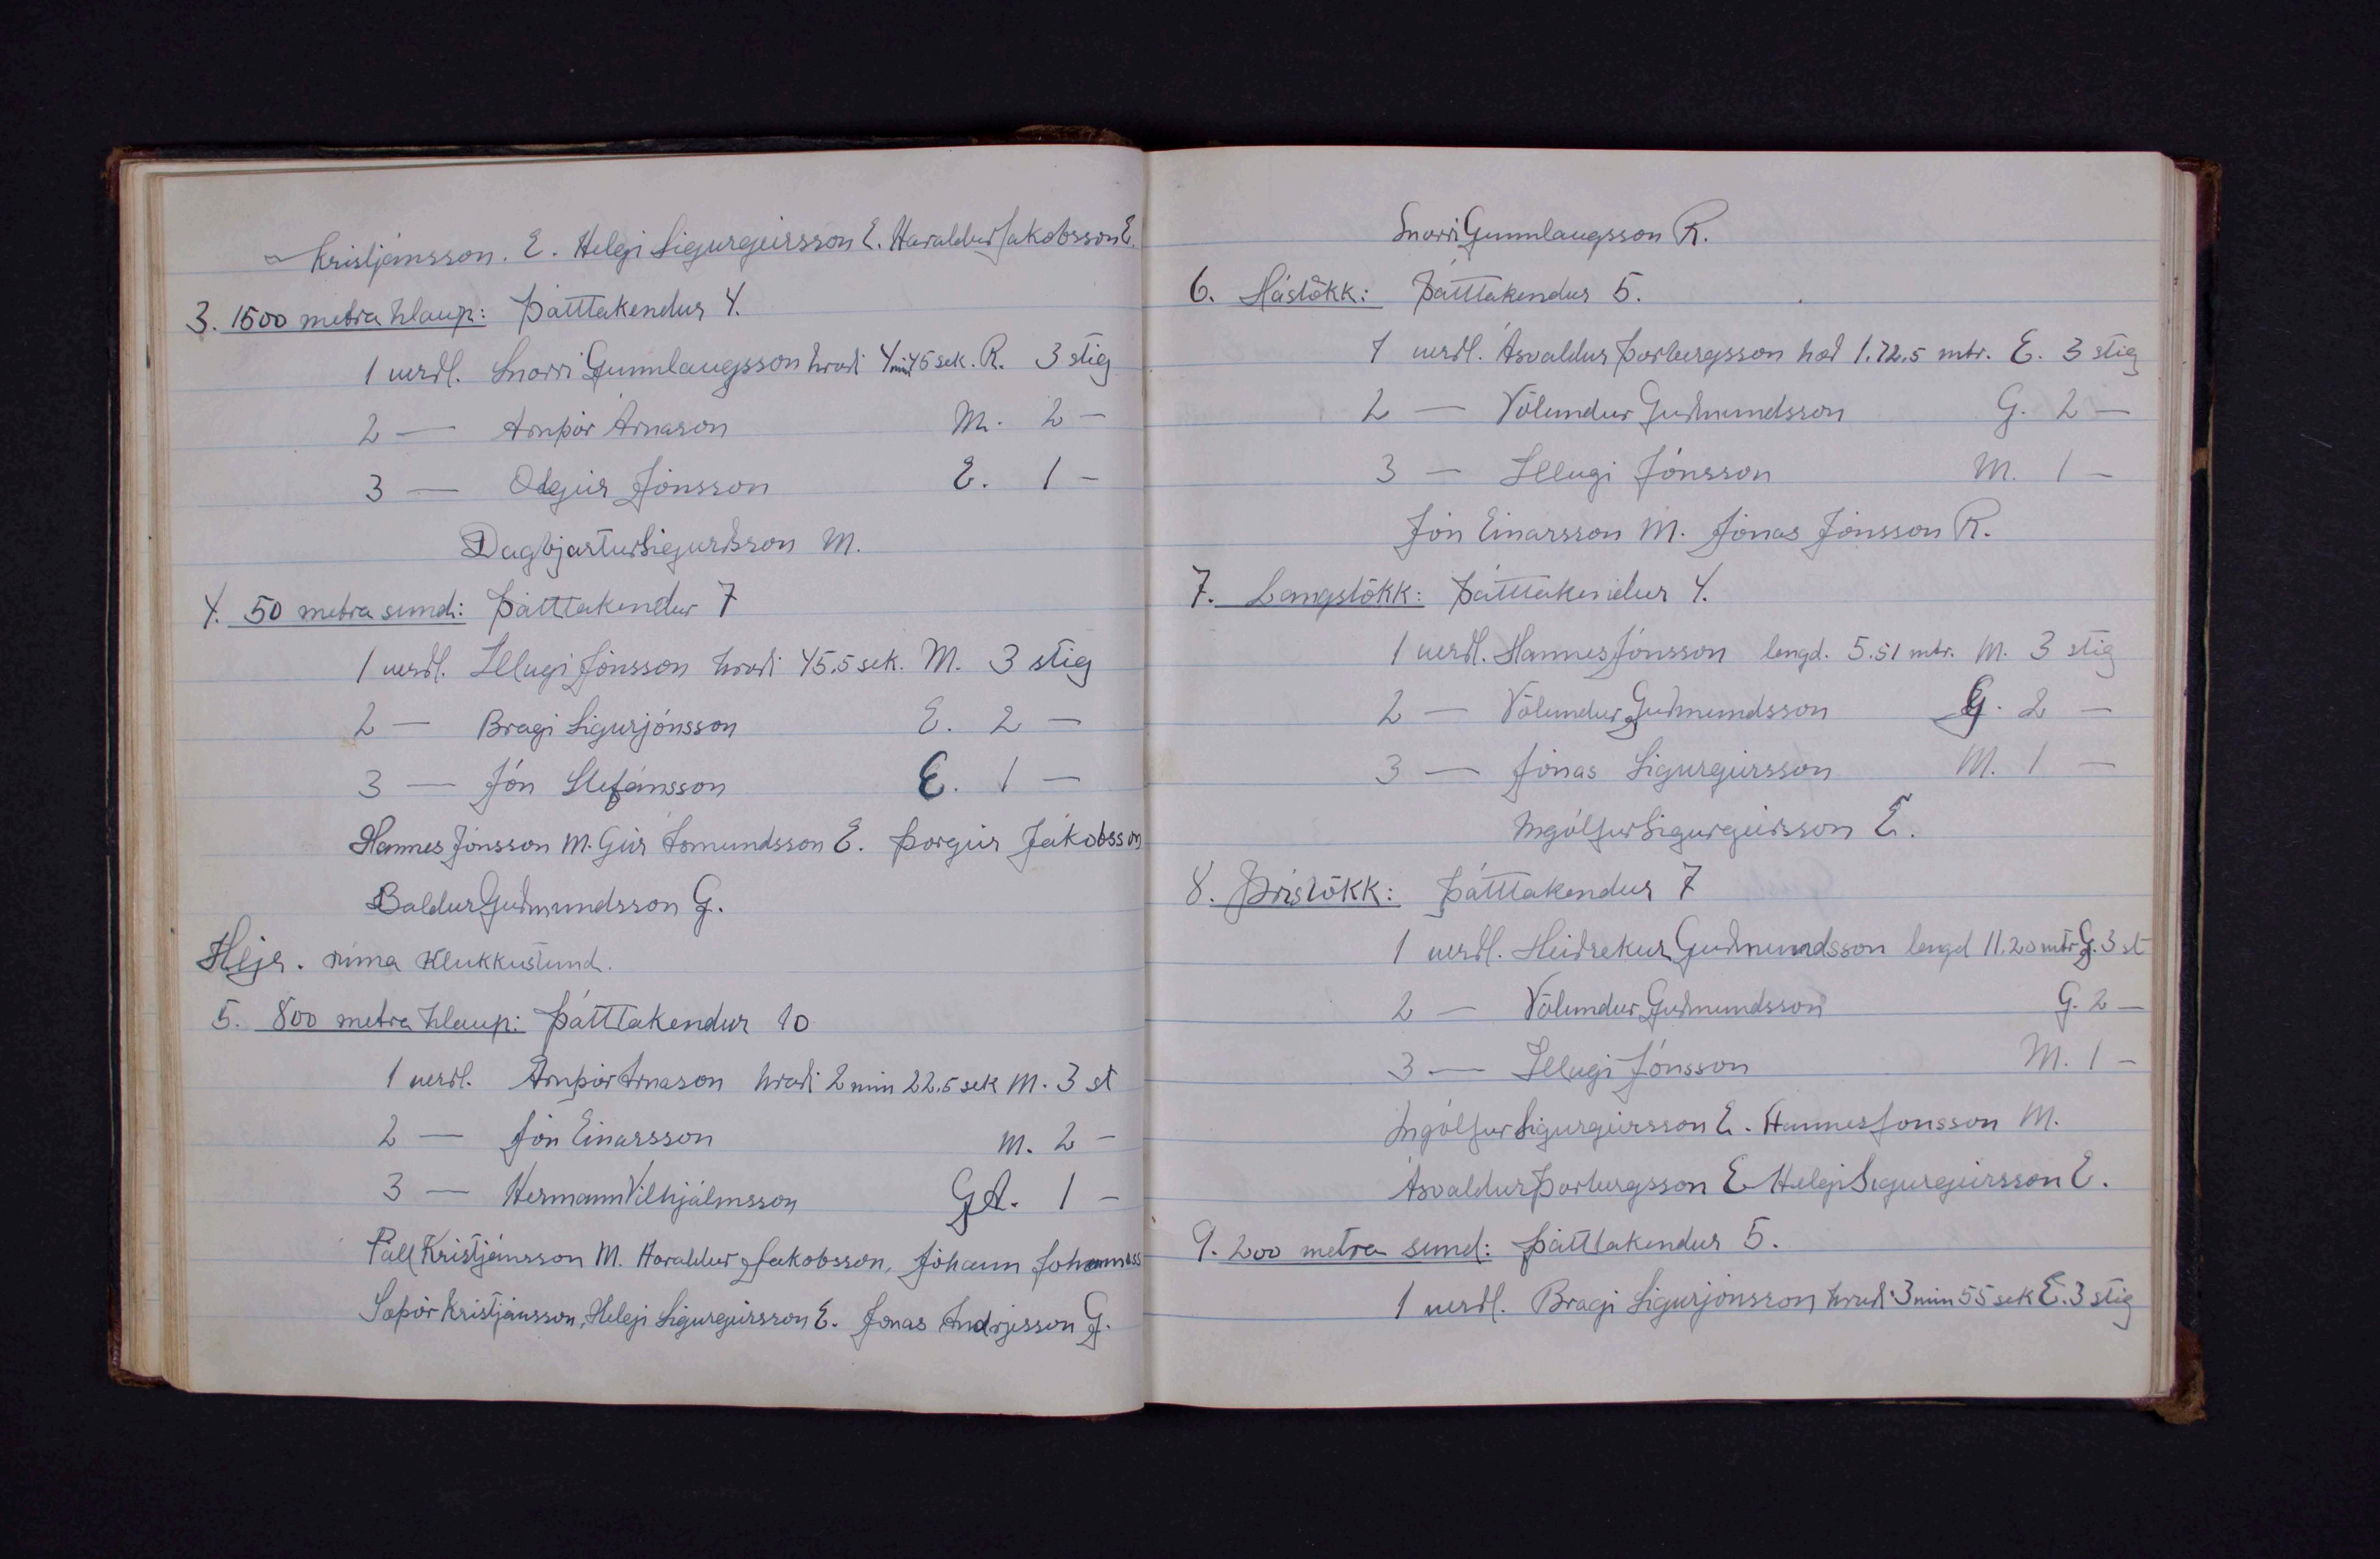 Kristjánsson. E. Helgi Sigurgeirsson E. Haraldur Jakobsson E.
3. 1500 metra hlaup: Þátttakendur 4.
1 verðl. Snorri Gunnlaugsson hraði 4 mín 45 sek. R. 3 stig
2 — Arnþór Árnason M. 2 —
3 — Olgeir Jónsson E. 1 —
Dagbjartur Sigurðsson M.
4. 50 metra sund: Þátttakendur 7
1 verðl. Illugi Jónsson hraði 45,5 sek. M. 3 stig
2 — Bragi Sigurjónsson E. 2 —
3 — Jón Stefánsson E. 1 —
Hannes Jónsson M. Geir Ásmundsson E. Þorgeir Jakobsson
Baldur Guðmundsson G.
Hljé. níma klukkustund.
5. 800 metra hlaup: Þátttakendur 10
1 verðl. Arnþór Árnason hraði 2 mín 22,5 sek M. 3 st
2 — Jón Einarsson M. 2 —
3 — Hermann Vilhjálmsson GA. 1 —
Páll Kristjánsson M. Haraldur Jakobsson, Jóhann Johanness
Sæþór Kristjánsson, Helgi Sigurgeirsson E. Jonas Andrjesson G.
Snorri Gunnlaugsson R.
6. Hástökk: Þátttakendur 5.
1 verðl. Ásvaldur Þorbergsson hæð 1.72,5 mtr. E. 3 stig
2 — Völundur Guðmundsson G. 2 —
3 — Illugi Jónsson M. 1 —
Jón Einarsson M. Jónas Jónsson R.
7. Langstökk: Þátttakendur 4.
1 verðl. Hannes Jónsson lengd. 5.51 mtr. M. 3 stig
2 — Völundur Guðmundsson G. 2 —
3 — Jónas Sigurgeirsson M. 1 —
Ingólfur Sigurgeirsson E.
8. Þrístökk: Þátttakendur 7
1 verðl. Heiðrekur Guðmundsson lengd 11.20 mtr G. 3 st
2 — Völundur Guðmundsson G. 2 —
3 — Illugi Jónsson M. 1 —
Ingólfur Sigurgeirsson E. Hannes Jonsson M.
Ásvaldur Þorbergsson E Helgi Sigurgeirsson E.
9. 200 metra sund: Þátttakendur 5.
1 verðl. Bragi Sigurjónsson hraði 3 mín 55 sek E. 3 stig